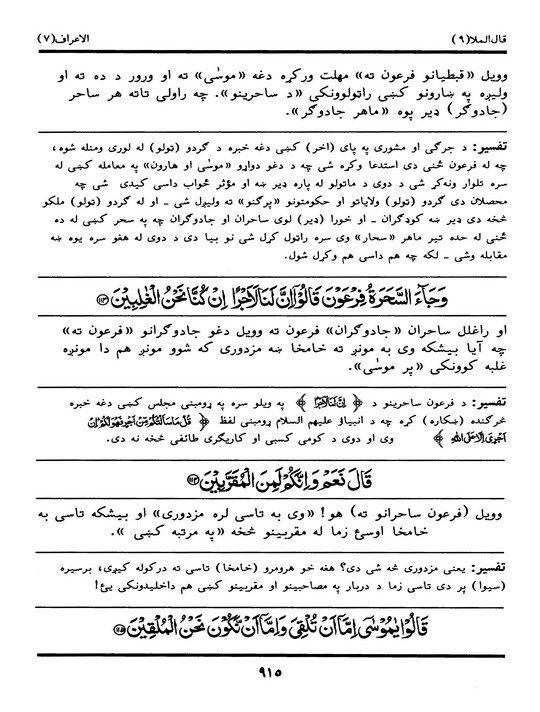 قال الملا (٩)
الاعراف (٧)
وویل «قبطیانو فرعون ته» مهلت ورکړه دغه «موسٰی» ته او ورور د ده ته او
ولیږه په ښارونو کښی راټولوونکی «د ساحرینو». چه راولی تاته هر ساحر
(جادوګر) ډیر پوه «ماهر جادوګر».
تفسیر: د جرګی او مشوری په پای (اخر) کښی دغه خبره د ګردو (ټولو) له لوری ومنله شوه،
چه له فرعون څنی دی استدعا وکړه شی چه د دغو دواړو «موسٰی او هارون» په معامله کښی له
سره تلوار ونه‌کړ شی د دوی د ماتولو له پاره ډیر ښه او مؤثر ځواب داسی کیدی شی چه
محصلان دی ګردو (ټولو) ولایاتو او حکومتونو «پرګنو» ته ولیږل شی ـ او له ګردو (ټولو) ملکو
څخه دی ډیر ښه کوډګران ـ او خورا (ډیر) لوی ساحران او جادوګران چه په سحر کښی له ده
څنی له حده تیر ماهر «سحار» وی سره راټول کړل شی نو بیا دی د دوی له هغو سره یوه ښه
مقابله وشی ـ لکه چه هم داسی هم وکړل شول.
وَجَآءَ السَّحَرَةُ فِرْعَوْنَ قَالُوْٓا اِنَّ لَنَا لَاَجْرًا اِنْ كُنَّا نَحْنُ الْغٰلِبِيْنَ ﴿١١٣﴾
او راغلل ساحران «جادوګران» فرعون ته وویل دغو جادوګرانو «فرعون ته»
چه آیا بیشکه وی به مونږ ته خامخا ښه مزدوری که شوو مونږ هم دا مونږه
غلبه کوونکی «پر موسٰی».
تفسیر: د فرعون ساحرینو د ﴿اِنَّ لَنَا لَاَجْرًا﴾ په ویلو سره په ړومبنی مجلس کښی دغه خبره
څرګنده (ښکاره) کړه چه د انبیاؤ علیهم السلام ړومبنی لفظ ﴿قُلْ مَا سَاَلْتُكُمْ مِّنْ اَجْرٍ فَهُوَ لَكُمْ اِنْ
اَجْرِىَ اِلَّا عَلَى اللّٰهِ﴾ وی او دوی د کومی کسبی او کاریګری طائفی څخه نه دی.
قَالَ نَعَمْ وَاِنَّكُمْ لَمِنَ الْمُقَرَّبِيْنَ ﴿١١٤﴾
وویل (فرعون ساحرانو ته) هو! «وی به تاسی لره مزدوری» او بیشکه تاسی به
خامخا اوسئ زما له مقربینو څخه «په مرتبه کښی ».
تفسیر: یعنی مزدوری څه شی دی؟ هغه خو هرومرو (خامخا) تاسی ته درکوله کیږی، برسیره
(سیوا) پر دی تاسی زما د دربار په مصاحبینو او مقربینو کښی هم داخلیدونکی یئ!
قَالُوْا يٰمُوْسٰٓى اِمَّآ اَنْ تُلْقِىَ وَاِمَّآ اَنْ نَّكُوْنَ نَحْنُ الْمُلْقِيْنَ ﴿١١٥﴾
٩١٥